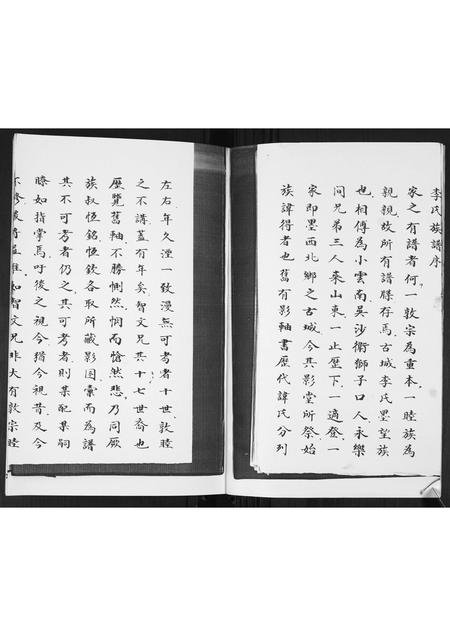 李氏族譜序
家之有譜者何?一敦宗為重本一睦族為
親親故所有譜牒存焉古城李氏墨望族
也相傳為小雲南吳沙衛獅子口人永樂
间兄弟三人來山東一止歷下一適登一
家即墨西北鄉之古城今其影堂所祭始
族諱得者也舊有影軸書歷代諱氏分列
左右年久湮一致漫無可考者十世敦睦
之不講蓋有年矣智文兄其十七世裔也
歷覽舊軸不勝惻然悯而愴然悲乃同厥
族叔恆銘恆鈫各取所藏影图彙而為譜
其不可考者仍之其可考者則某配某嗣
瞭如指掌焉吁後之視今猶今視昔及今
不修後將益難如智文兄非大有敦宗睦